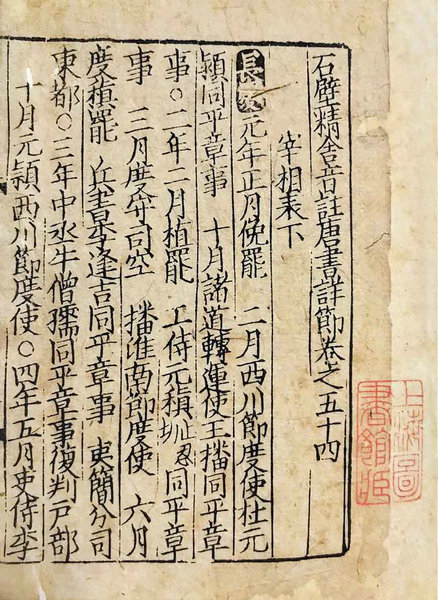 石壁精舍音註唐書詳節卷之五十四
宰相表下
長慶元年正月俛罷 二月西川節度使杜元
頴同平章事 十月諸道轉運使王播同平章
事○二年二月植罷 工侍元稹止忍同平章
事 三月度守司空 播淮南節度使 六月
度稹罷 兵書李逢吉同平章事 夷簡分司
東都○三年中丞牛僧孺同平章事復判戸部
十月元頴西川節度使○四年五月吏侍李
上海圖
書館藏